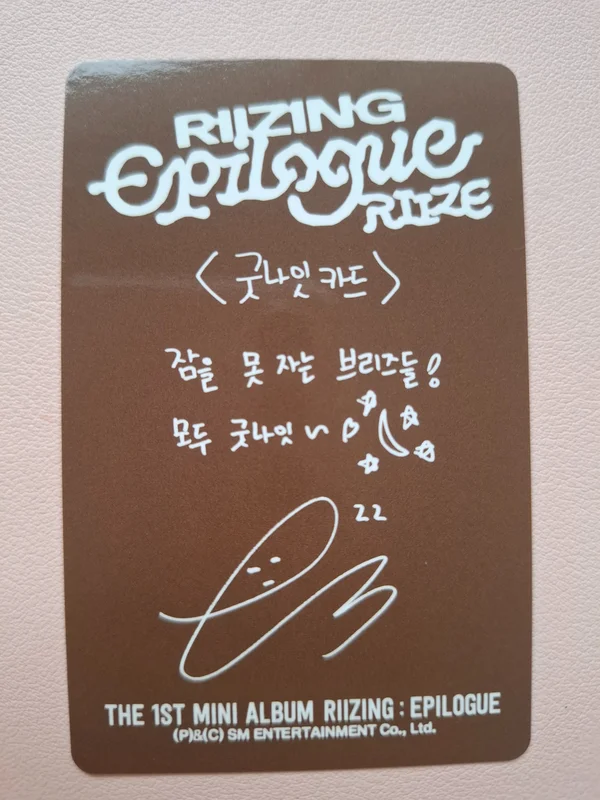 RIIZING
Epilogue
RIIZE
<굿나잇 카드>
잠을 못 자는 브리즈들!
모두 굿나잇~
22
THE 1ST MINI ALBUM RIIZING : EPILOGUE
(P)&(C) SM ENTERTAINMENT Co., Ltd.